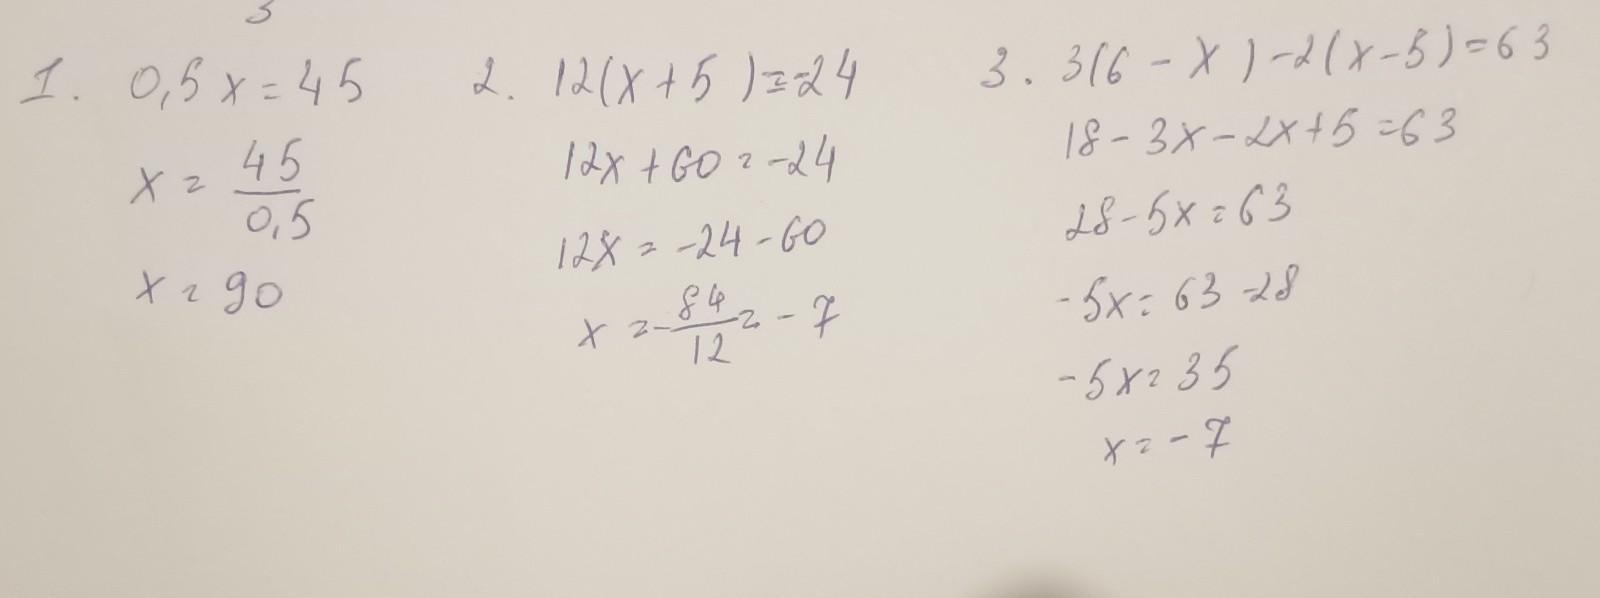 3
1. 0,5x=45
x=45/0,5
x=90
2. 12(x+5)=-24
12x+60=-24
12x=-24-60
x=-84/12=-7
3. 3(6-x)-2(x-5)=63
18-3x-2x+5=63
28-5x=63
-5x=63-28
-5x=35
x=-7